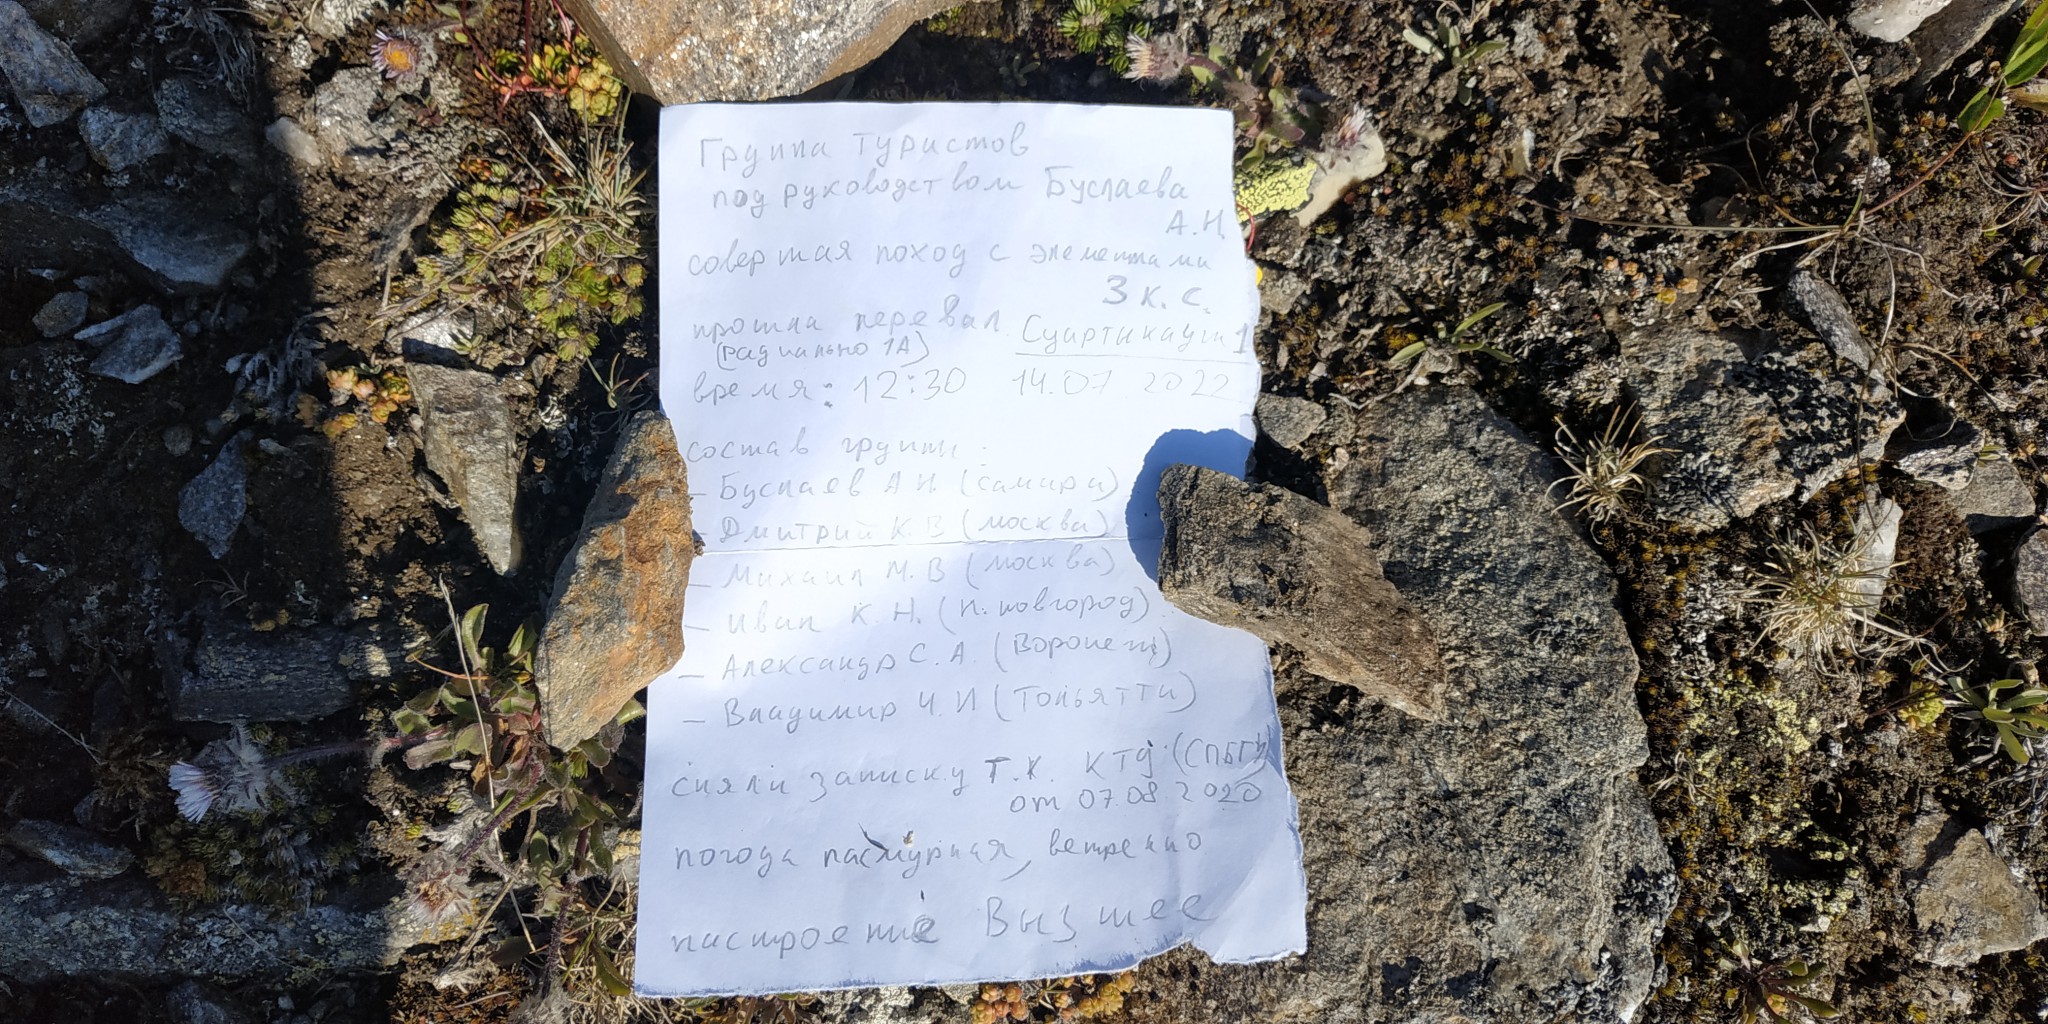 Группа туристов
под руководством Буслаева
А.Н.
совершая поход с элементами
3 к.с.
прошла перевал Суартыкауш 1
(радиально 1А)
время: 12:30 14.07 2022
состав группы:
– Буслаев А Н. (Самара)
– Дмитрий К.В (Москва)
– Михаил М.В (Москва)
– Иван К.Н. (Н.Новгород)
– Александр С.А. (Воронеж)
– Владимир Ч.И (Тольятти)
сняли записку Т.К. КТД (СПбГУ)
от 07.08.2020
погода пасмурная, ветренно
настроение Вызшее